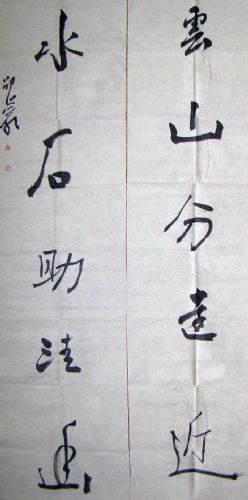 雲山分遠近
水石助清幽